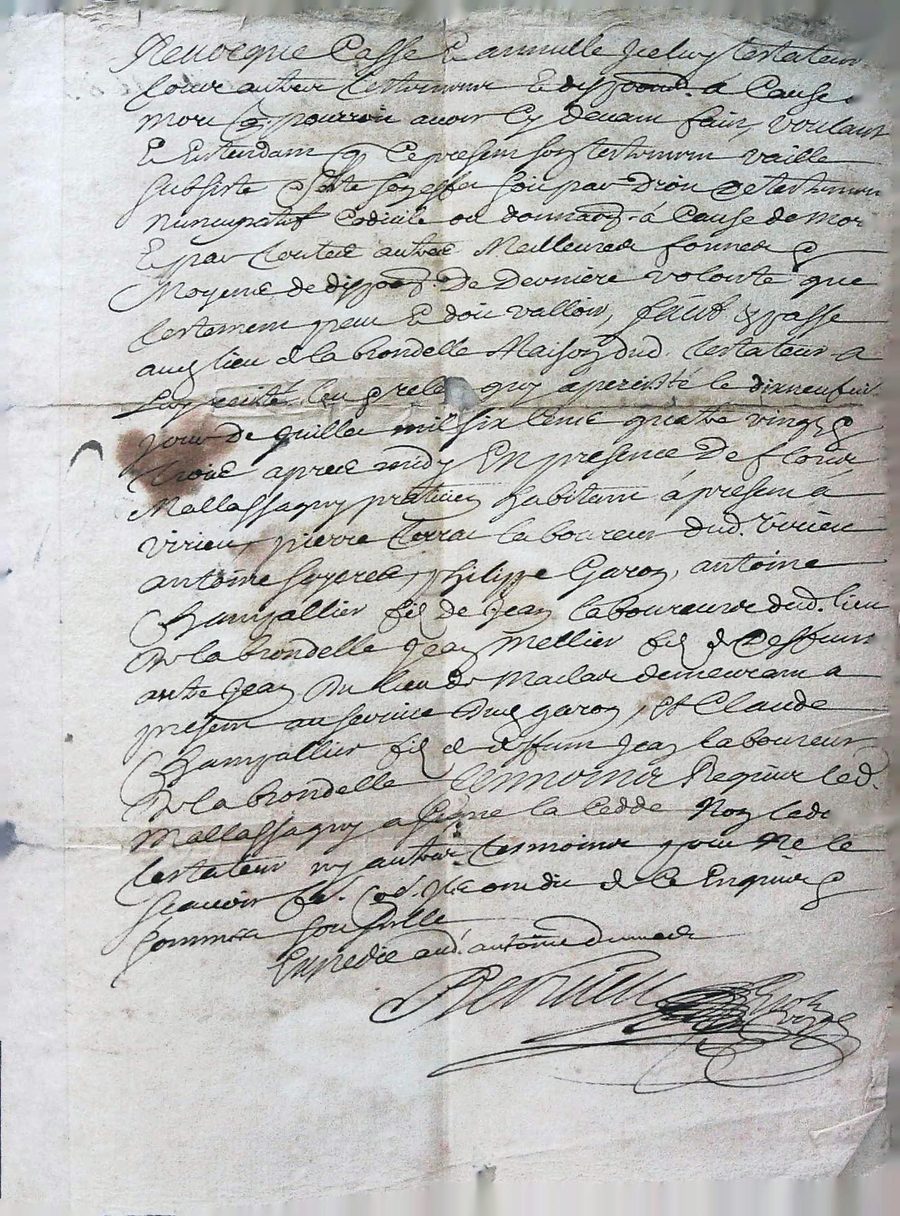 Revocque Casse & annulle Icelluy testateur
tous autres testamens & disposons. à Cause de
mort Qu pourroit avoir Cy devant faits, voulant
Et Entendam q Ce present son testament vaille
Subsiste & sorte son effet soit par droit de testament
nuncupatif Codicile ou donnaon. à Cause de mort
Et par toutes autres Meilleures formes &
Moyens de disposon. De Derniere volonté que
testament peut & doit valloir, fait & passé
aud lieu de la brondelle Maison dud. testateur a
Luy leu & releu quy a persisté le dixneufvie
jour de Juillet mil six Cens quatre vingts &
trois apres midy En presence De
Mallassagny praticien habitant à present a
virieu, pierre terrat laboureur dud. virieu
antoine philippe Garon, antoine
Champallier fils de Jean laboureurs dud. lieu
De la brondelle Jean Mellier fils de deffunt
autre Jean du lieu de Maclas demeurant a
present au service dud garon, et Claude
Champallier fils de deffunt Jean laboureur
De la brondelle tesmoins Requis led.
Mallassagny a signé la Cedde Non ledt
testateur ny autres tesmoins pour Ne le
scavoir fe. de Ce Enquis &
sommes
Expedié aud. antoine